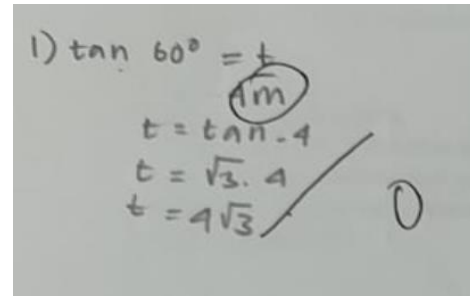 1) tan 60° = t
4m
t = tan . 4
t = √3 . 4
t = 4√3
0